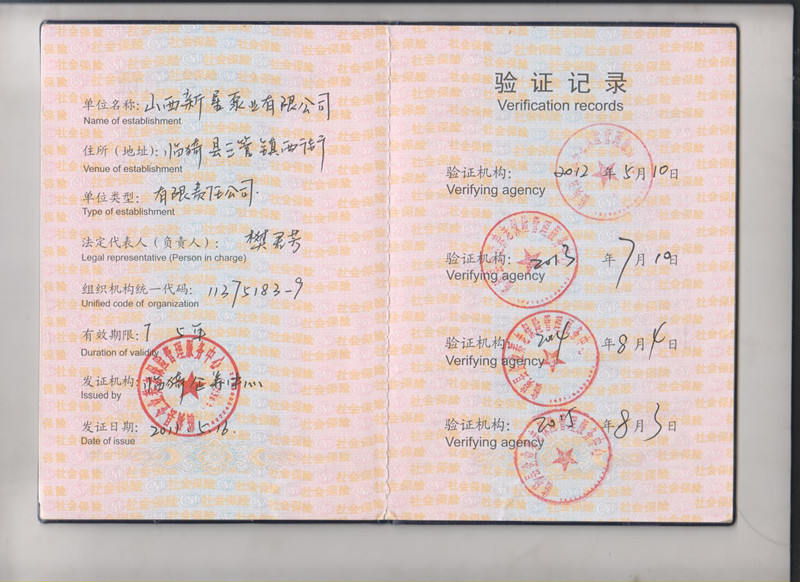 单位名称: 山西新星泵业有限公司
Name of establishment
住所（地址）: 临猗县三管镇西街
Venue of establishment
单位类型: 有限责任公司
Type of establishment
法定代表人（负责人）: 樊君芳
Legal representative (Person in charge)
组织机构统一代码: 11375183-9
Unified code of organization
有效期限:
Duration of validity
发证机构: 临猗
Issued by
发证日期:
Date of issue
验证记录
Verification records
验证机构: 2012 年 5 月 10 日
Verifying agency
验证机构: 2013 年 7 月 10 日
Verifying agency
验证机构: 2014 年 8 月 4 日
Verifying agency
验证机构: 2015 年 8 月 3 日
Verifying agency